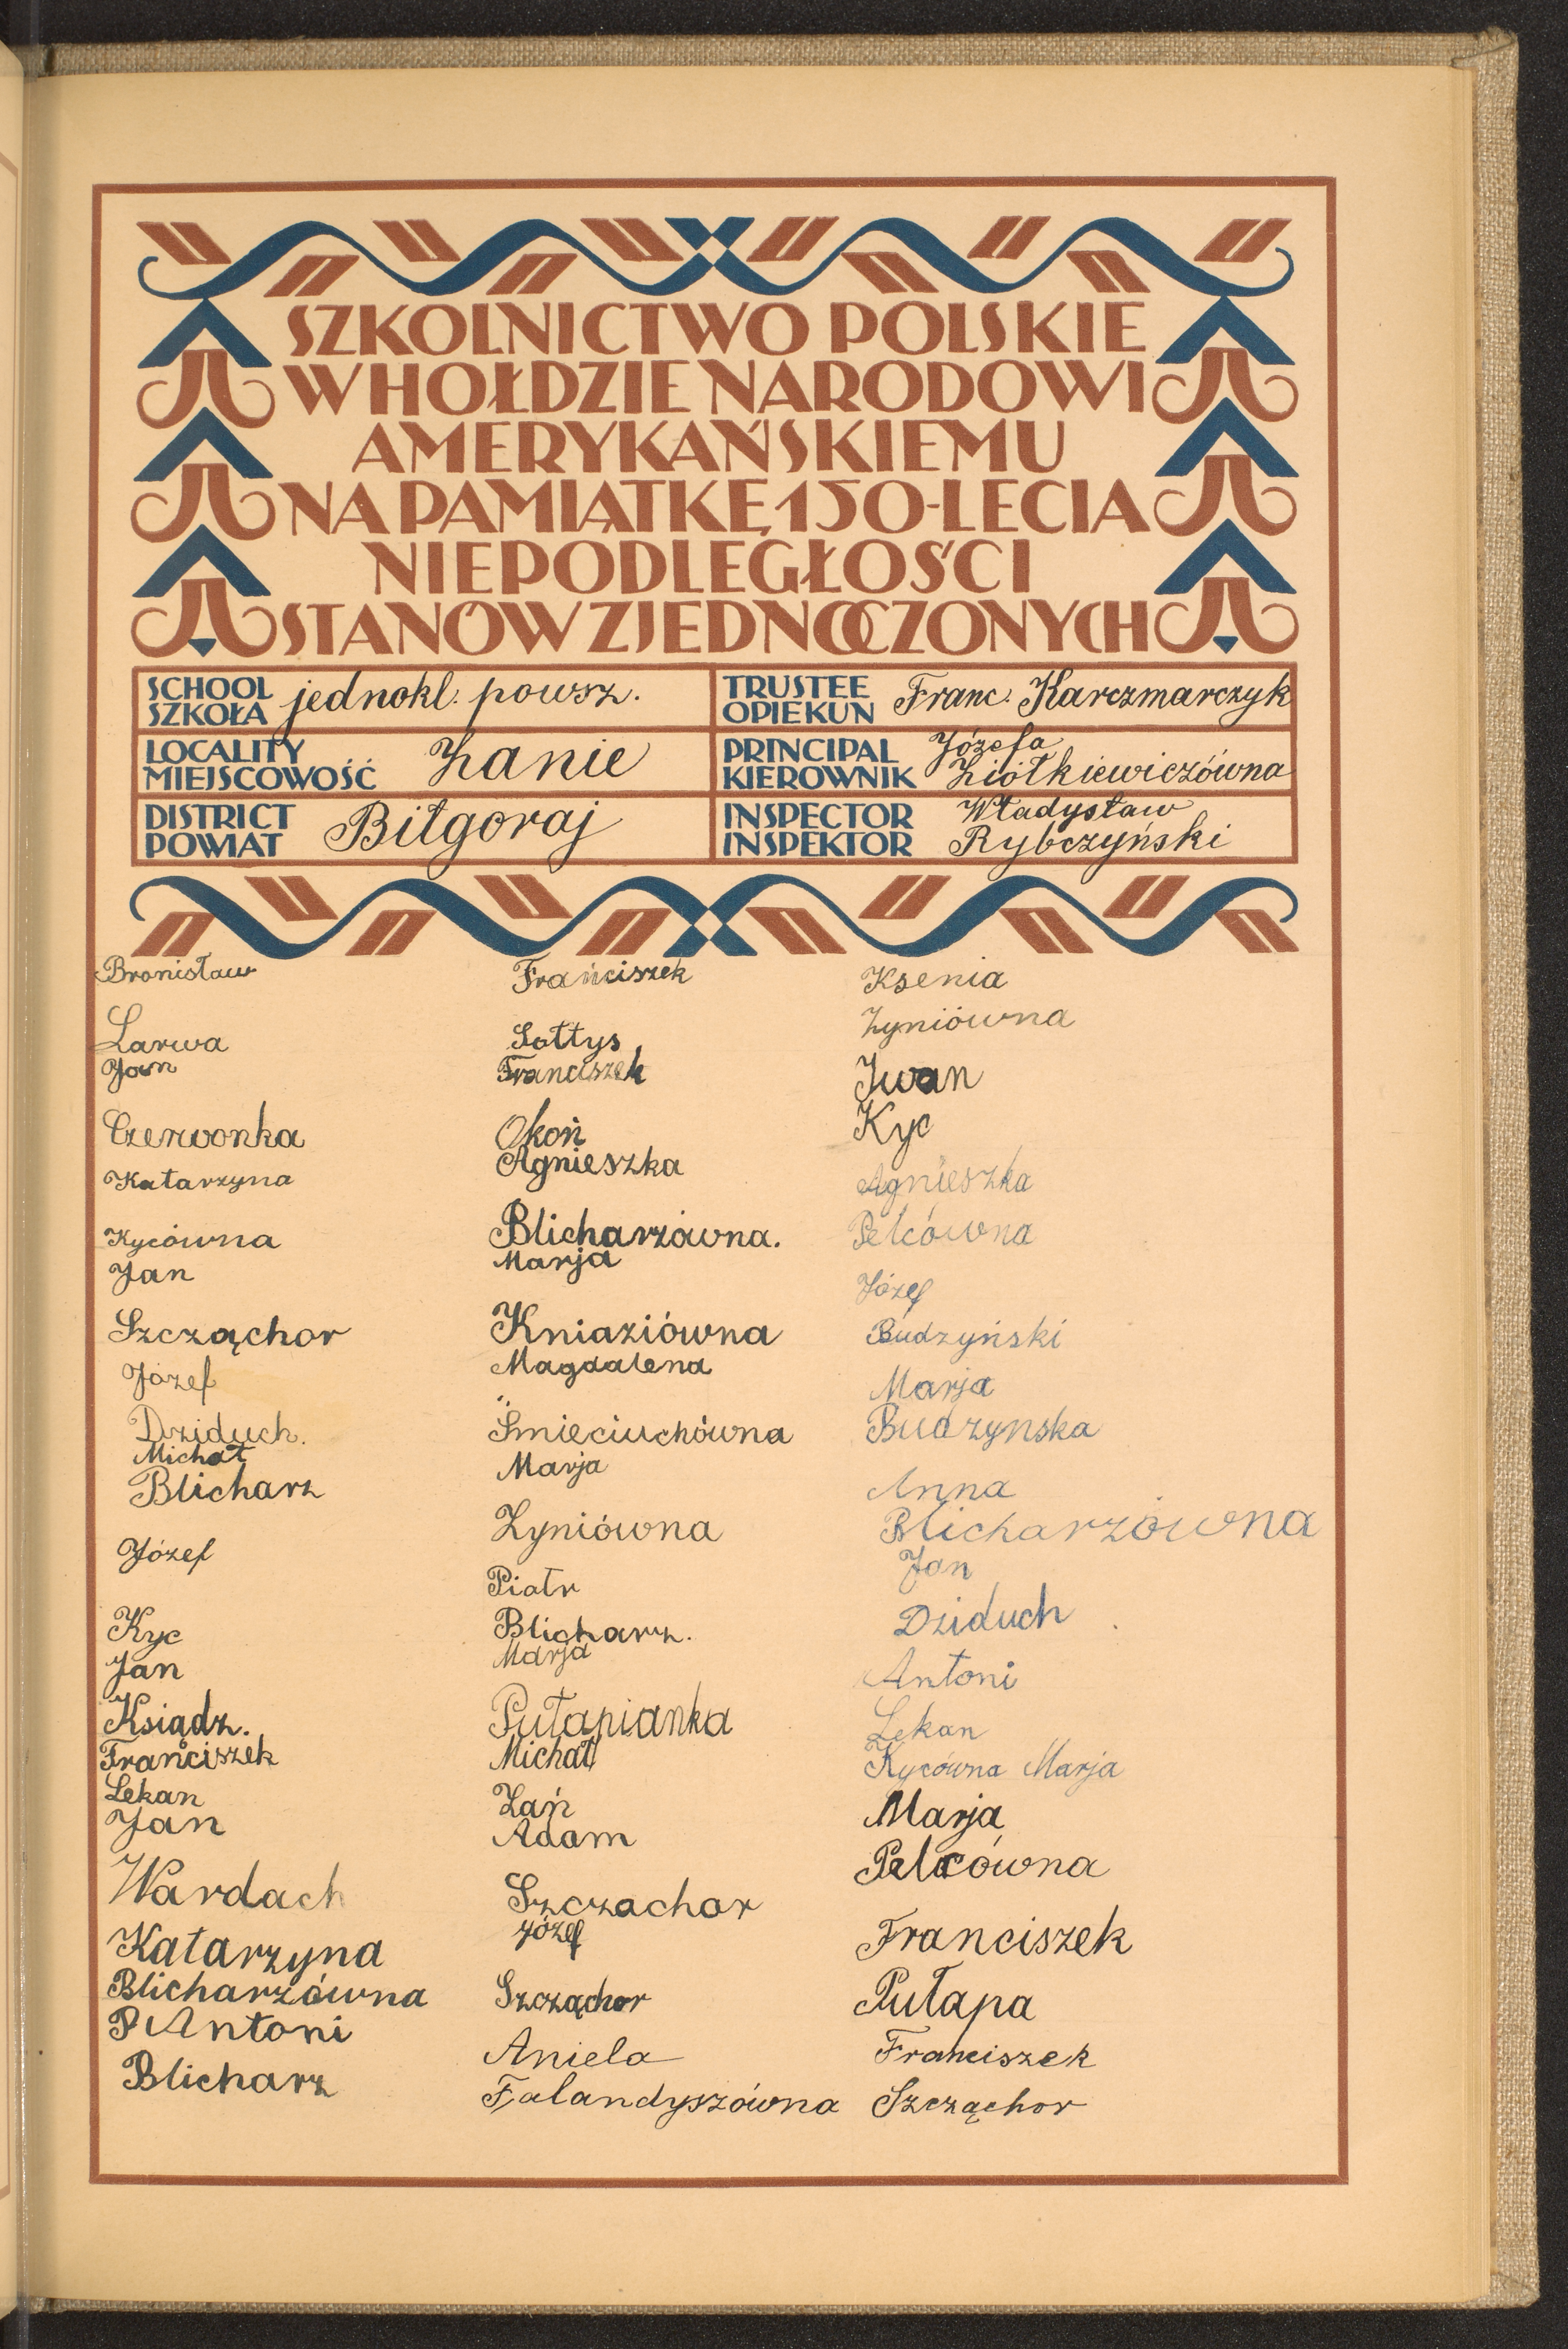 SZKOLNICTWO POLSKIE
W HOŁDZIE NARODOWI
AMERYKAŃSKIEMU
NA PAMIĄTKĘ 150-LECIA
NIEPODLEGŁOŚCI
STANÓW ZJEDNOCZONYCH
SCHOOL
SZKOŁA
jednokl. powsz.
TRUSTEE
OPIEKUN
Franc. Karczmarczyk
LOCALITY
MIEJSCOWOŚĆ
Żanie
PRINCIPAL
KIEROWNIK
Józefa
Ziółkiewiczówna
DISTRICT
POWIAT
Biłgoraj
INSPECTOR
INSPEKTOR
Władysław
Rybczyński
Bronisław
Larwa
Jan
Czerwonka
Katarzyna
Kycówna
Jan
Szcząchor
Józef
Dziduch.
Michał
Blicharz
Józef
Kyc
Jan
Ksiądz.
Franciszek
Lekan
Jan
Wardach
Katarzyna
Blicharzówna
Antoni
Blicharz
Frańciszek
Sołtys
Franciszek
Okoń
Agnieszka
Blicharzówna.
Marja
Kniaziówna
Magdalena
Śmieciuchówna
Marja
Zyniówna
Piotr
Blicharz.
Marja
Pułapianka
Michał
Zań
Adam
Szczachor
Józef
Szcząchor
Aniela
Falandyszówna
Ksenia
Zyniówna
Iwan
Kyc
Agnieszka
Pelcówna
Józef
Budzyński
Marja
Budzynska
Anna
Blicharzówna
Jan
Dziduch
Antoni
Lekan
Kycówna Marja
Marja
Pelcówna
Franciszek
Pułapa
Franciszek
Szcząchor